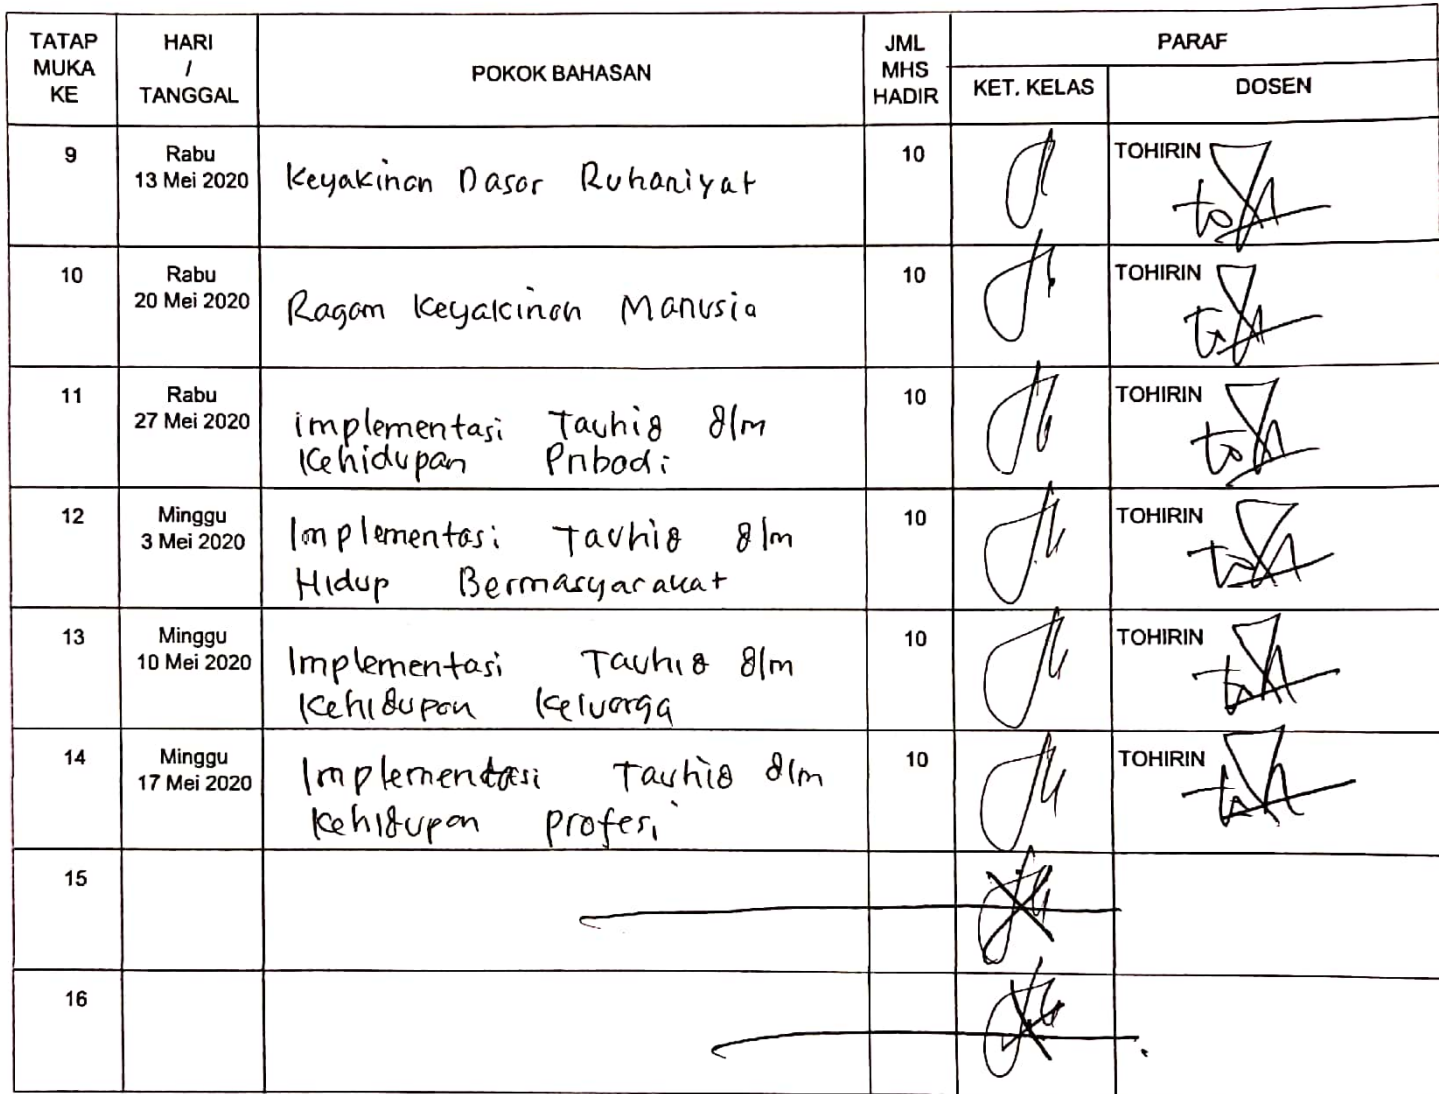 TATAP MUKA KE
HARI / TANGGAL
POKOK BAHASAN
JML MHS HADIR
PARAF
KET. KELAS
DOSEN
9
Rabu
13 Mei 2020
Keyakinan Dasar Ruhaniyat
10
TOHIRIN
10
Rabu
20 Mei 2020
Ragam Keyakinan Manusia
10
TOHIRIN
11
Rabu
27 Mei 2020
implementasi Tauhid dlm
Kehidupan Pribadi
10
TOHIRIN
12
Minggu
3 Mei 2020
Implementasi Tauhid dlm
Hidup Bermasyarakat
10
TOHIRIN
13
Minggu
10 Mei 2020
Implementasi Tauhid dlm
Kehidupan Keluarga
10
TOHIRIN
14
Minggu
17 Mei 2020
Implementasi Tauhid dlm
Kehidupan profesi
10
TOHIRIN
15
16